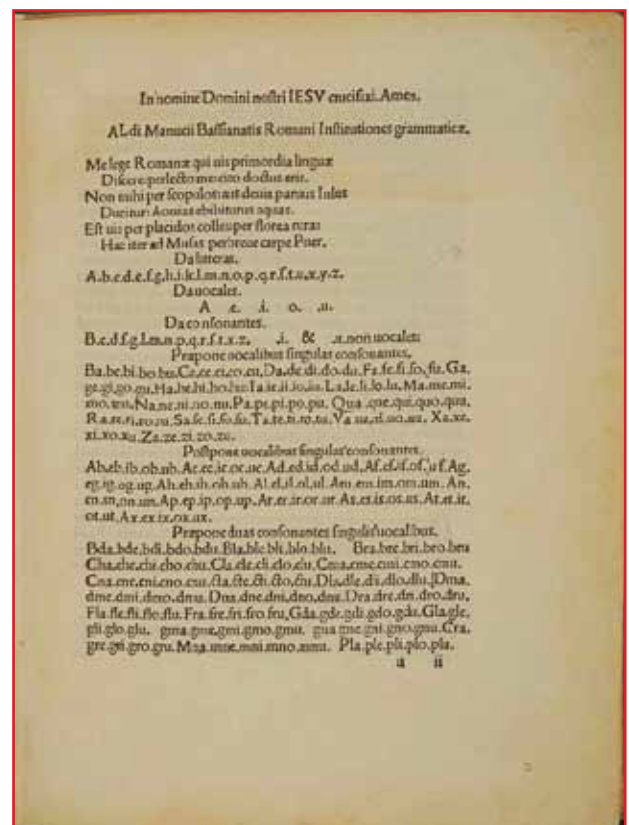 In nomine Domini nostri IESV crucifixi. Amen.
ALdi Manucii Bassianatis Romani Institutiones grammaticæ.
Me lege Romanæ qui uis primordia linguæ
Discere perfecto
doctus eris.
Non mihi per scopulos aut deuia paruus Iulus
Ducitur: Aonias ebibiturus aquas.
Est uia per placidos colles per florea rura:
Hac iter ad Musas perbreue carpe Puer.
Da litteras.
A.b.c.d.e.f.g.h.i.k.l.m.n.o.p.q.r.s.t.u.x.y.z.
Da uocales.
A .e. .i. o. .u.
Da consonantes.
B.c.d.f.g.l.m.n.p.q.r.s.t.x.z. .i. & .u. non uocales
Præpone uocalibus singulas consonantes.
Ba.be.bi.bo.bu. Ca.ce.ci.co.cu. Da.de.di.do.du. Fa.fe.fi.fo.fu. Ga.
ge.gi.go.gu. Ha.he.hi.ho.hu. Ia.ie.ii.io.iu. La.le.li.lo.lu. Ma.me.mi.
mo.mu. Na.ne.ni.no.nu. Pa.pe.pi.po.pu. Qua.que.qui.quo.quu.
Ra.re.ri.ro.ru. Sa.se.si.so.su. Ta.te.ti.to.tu. Va.ue.ui.uo.uu. Xa.xe.
xi.xo.xu. Za.ze.zi.zo.zu.
Postpone uocalibus singulas consonantes.
Ab.eb.ib.ob.ub. Ac.ec.ic.oc.uc. Ad.ed.id.od.ud. Af.ef.if.of.uf. Ag.
eg.ig.og.ug. Ah.eh.ih.oh.uh. Al.el.il.ol.ul. Am.em.im.om.um. An.
en.in.on.um. Ap.ep.ip.op.up. Ar.er.ir.or.ur. As.es.is.os.us. At.et.it.
ot.ut. Ax.ex.ix.ox.ux.
Præpone duas consonantes singulis uocalibus.
Bda.bde.bdi.bdo.bdu. Bla.ble.bli.blo.blu. Bra.bre.bri.bro.bru
Cha.che.chi.cho.chu. Cla.cle.cli.clo.clu. Cma.cme.cmi.cmo.cmu.
Cna.cne.cni.cno.cnu. cta.cte.cti.cto.ctu. Dla.dle.dli.dlo.dlu. Dma.
dme.dmi.dmo.dmu. Dna.dne.dni.dno.dnu. Dra.dre.dri.dro.dru.
Fla.fle.fli.flo.flu. Fra.fre.fri.fro.fru. Gda.gde.gdi.gdo.gdu. Gla.gle.
gli.glo.glu. gma.gme.gmi.gmo.gmu. gna.gne.gni.gno.gnu. Gra.
gre.gri.gro.gru. Mna.mne.mni.mno.mnu. Pla.ple.pli.plo.pla.
a ii